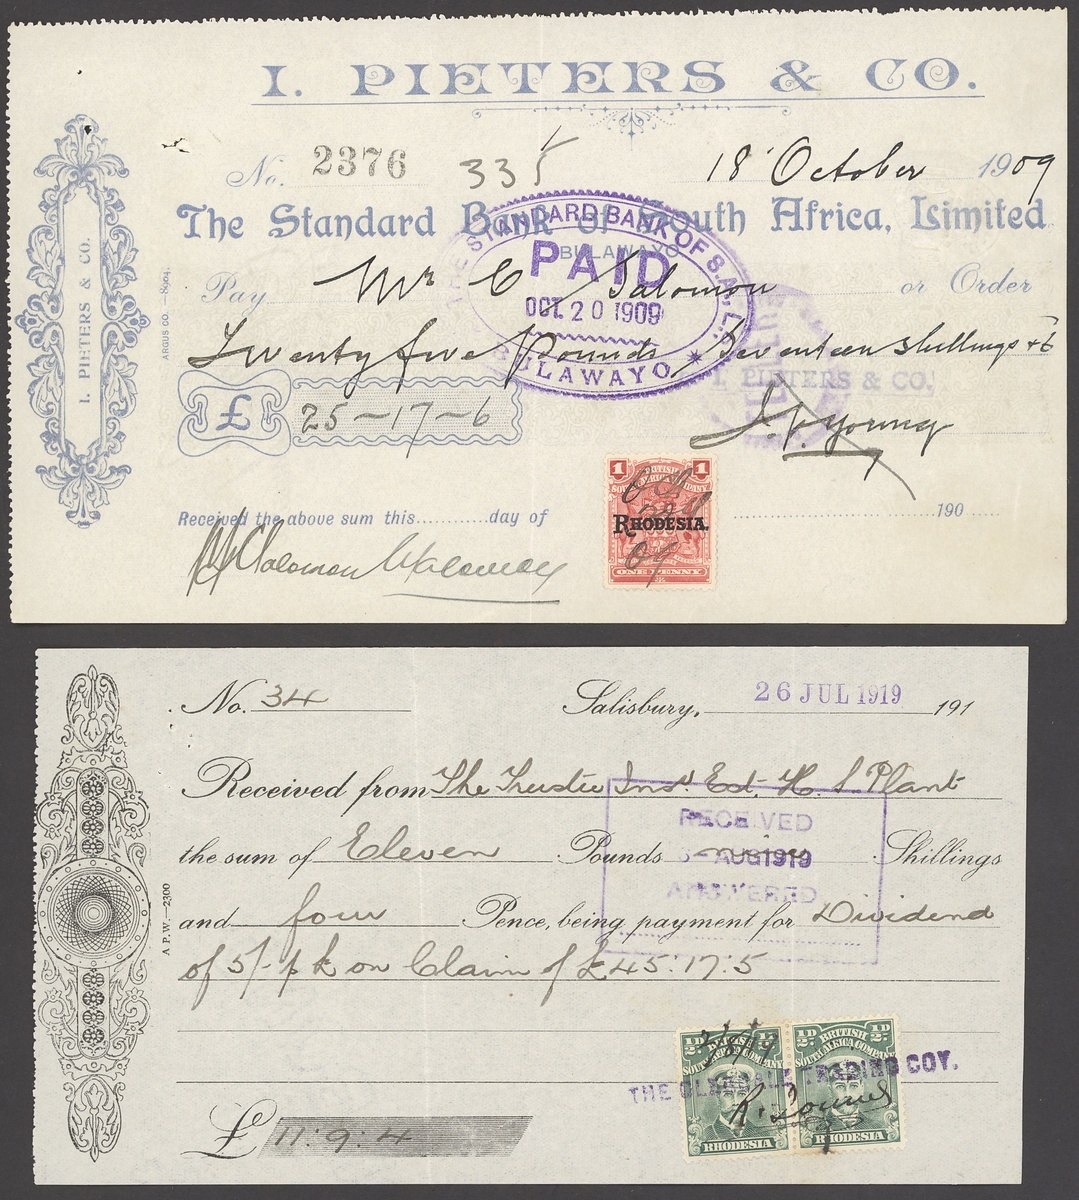 I. PIETERS & CO.
No. 2376 335 18 October 1909
The Standard Bank of South Africa, Limited
BULAWAYO
THE STANDARD BANK OF S.A., L
PAID
OCT. 20 1909
BULAWAYO
Pay Mr C Salomon or Order
Twenty five Pounds Seventeen shillings + 6
I. PIETERS & CO.
£ 25-17-6
Young
I. PIETERS & CO.
ARGUS CO.—8904.
Received the above sum this..........day of 190
Salomon
1 1
BRITISH
SOUTH AFRICA COMPANY
RHODESIA.
ONE PENNY
Oct
09
No. 34 Salisbury, 26 JUL 1919 191
Received from The Trustee Inst Est. H. S. Plant
the sum of Eleven Pounds nine Shillings
and four Pence, being payment for Dividend
of 5/- p £ on Claim of £45:17:5
RECEIVED
AUG 1919
ANSWERED
A.P.W.—2300
THE TRADING COY.
½D ½D ½D ½D
BRITISH BRITISH
SOUTH AFRICA COMPANY SOUTH AFRICA COMPANY
RHODESIA RHODESIA
£ 11:9:4